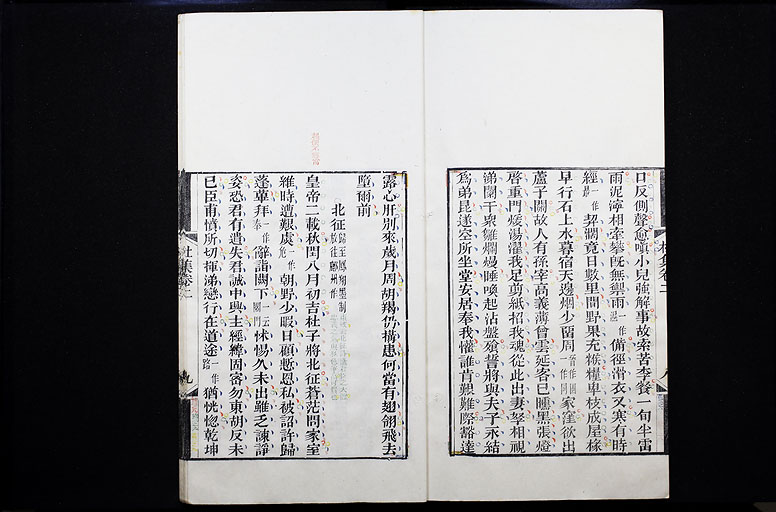 口反側聲愈嗔小兒強解事故索苦李餐一旬半雷
雨泥濘相牽攀既無禦雨濕一作備徑滑衣又寒有時
經一作契濶竟日數里間野果充糇糧卑枝成屋椽
早行石上水暮宿天邊烟少留周一作同家窪欲出
蘆子關故人有孫宰高義薄曾雲延客已曛黑張燈
啓重門煖湯濯我足剪紙招我魂從此出妻孥相視
涕闌干衆雛爛熳睡喚起沾盤飱誓將與夫子永結
爲弟昆遂空所坐堂安居奉我懽誰肯艱難際豁達
露心肝別來歲月周胡羯仍搆患何當有翅翎飛去
墮爾前
北征歸至鳳翔墨制放往鄜州作
皇帝二載秋閏八月初吉杜子將北征蒼茫問家室
維時遭艱虞危一作朝野少暇日顧慙恩私被詔許歸
蓬蓽拜奉一作辭詣闕下一云閤門怵惕久未出雖乏諫諍
姿恐君有遺失君誠中興主經緯固密勿東胡反未
已臣甫憤所切揮涕戀行在道途路一作猶恍惚乾坤
杜集卷二
九